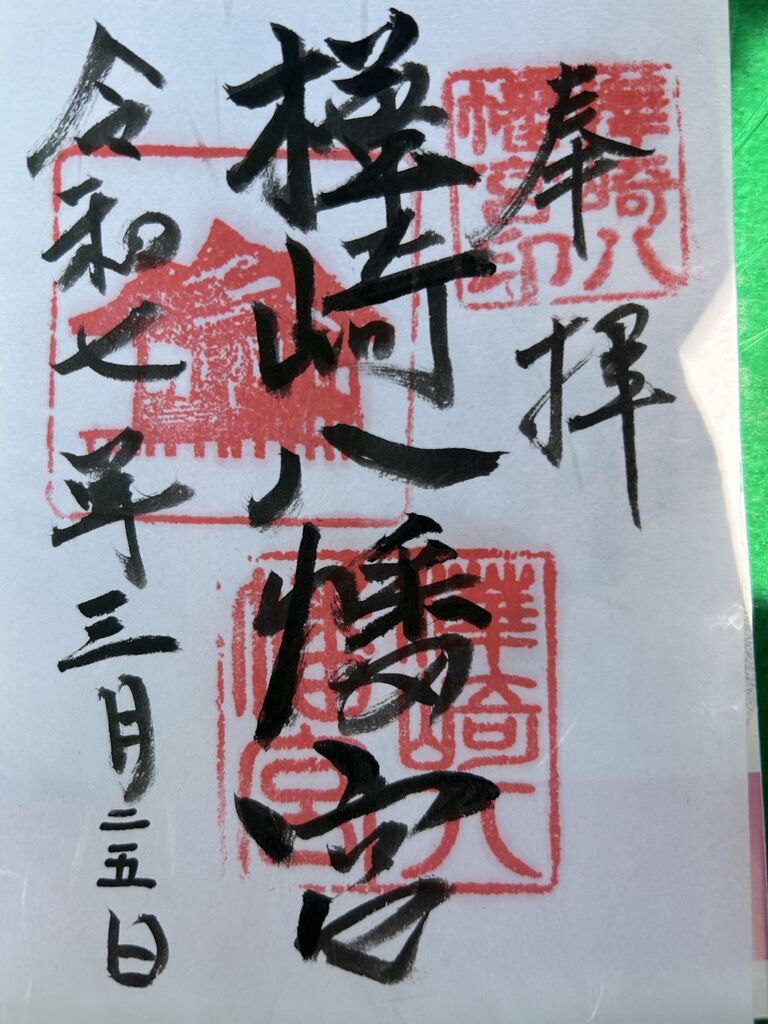 奉拝
樺崎八
幡宮印
樺崎八幡宮
樺崎八
幡宮
令和七年三月二五日